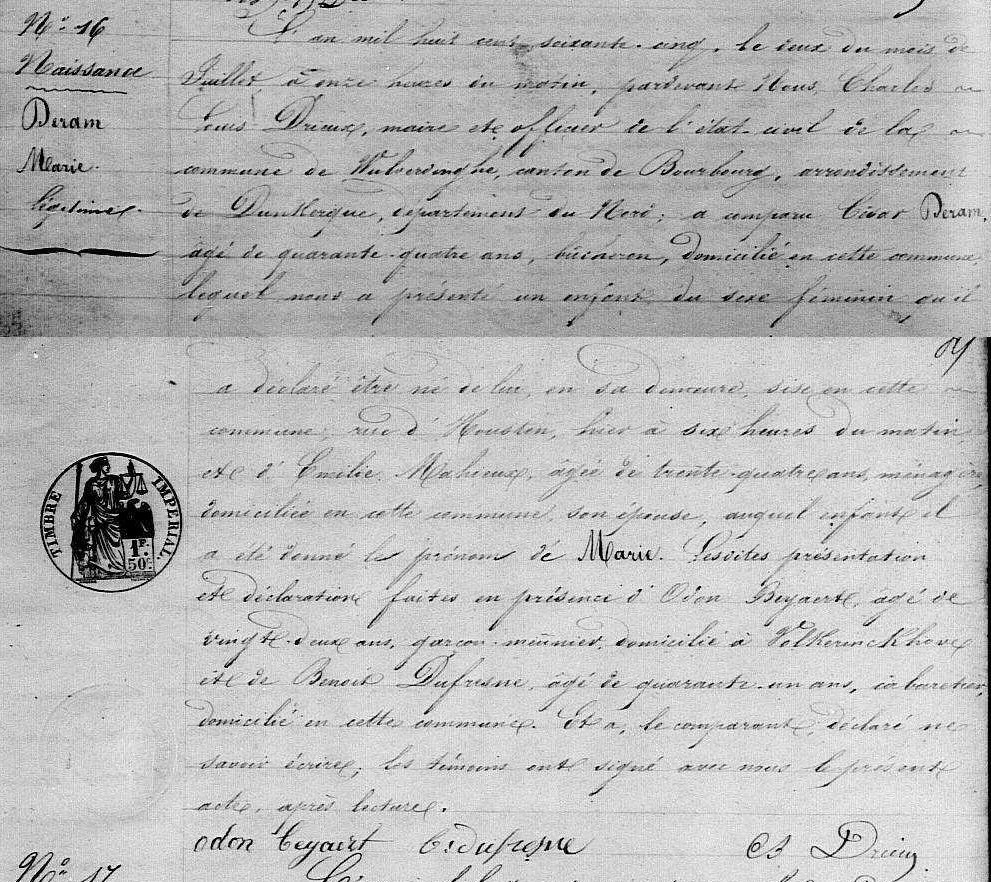 N.° 16
Naissance
Deram
Marie.
légitime.
L'an mil huit cent soixante-cinq, le deux du mois de
Juillet à onze heures du matin, pardevant Nous, Charles
Louis Drieux, maire et officier de l'état-civil de la
commune de Wulverdinghe, canton de Bourbourg, arrondissement
de Dunkerque, département du Nord; a comparu César Deram,
âgé de quarante-quatre ans, bûcheron, domicilié en cette commune,
lequel nous a présenté un enfant du sexe féminin qu'il
a déclaré être né de lui, en sa demeure, sise en cette
commune, rue d'Housten, hier à six heures du matin
et d'Emilie Mahieux, âgée de trente-quatre ans, ménagère,
domiciliée en cette commune, son épouse, auquel enfant il
a été donné le prénom de Marie. Lesdites présentation
et déclaration faites en présence d'Odon Beyaert, âgé de
vingt-deux ans, garçon-meunier, domicilié à Volkerinckhove
et de Benoit Dufresne, âgé de quarante-un ans, cabaretier,
domicilié en cette commune. Et a, le comparant, déclaré ne
savoir écrire; les témoins ont signé avec nous le présent
acte, après lecture.
TIMBRE IMPERIAL
1F.
50C.
odon Beyaert B. dufresne Ch Drieux
N.° 17